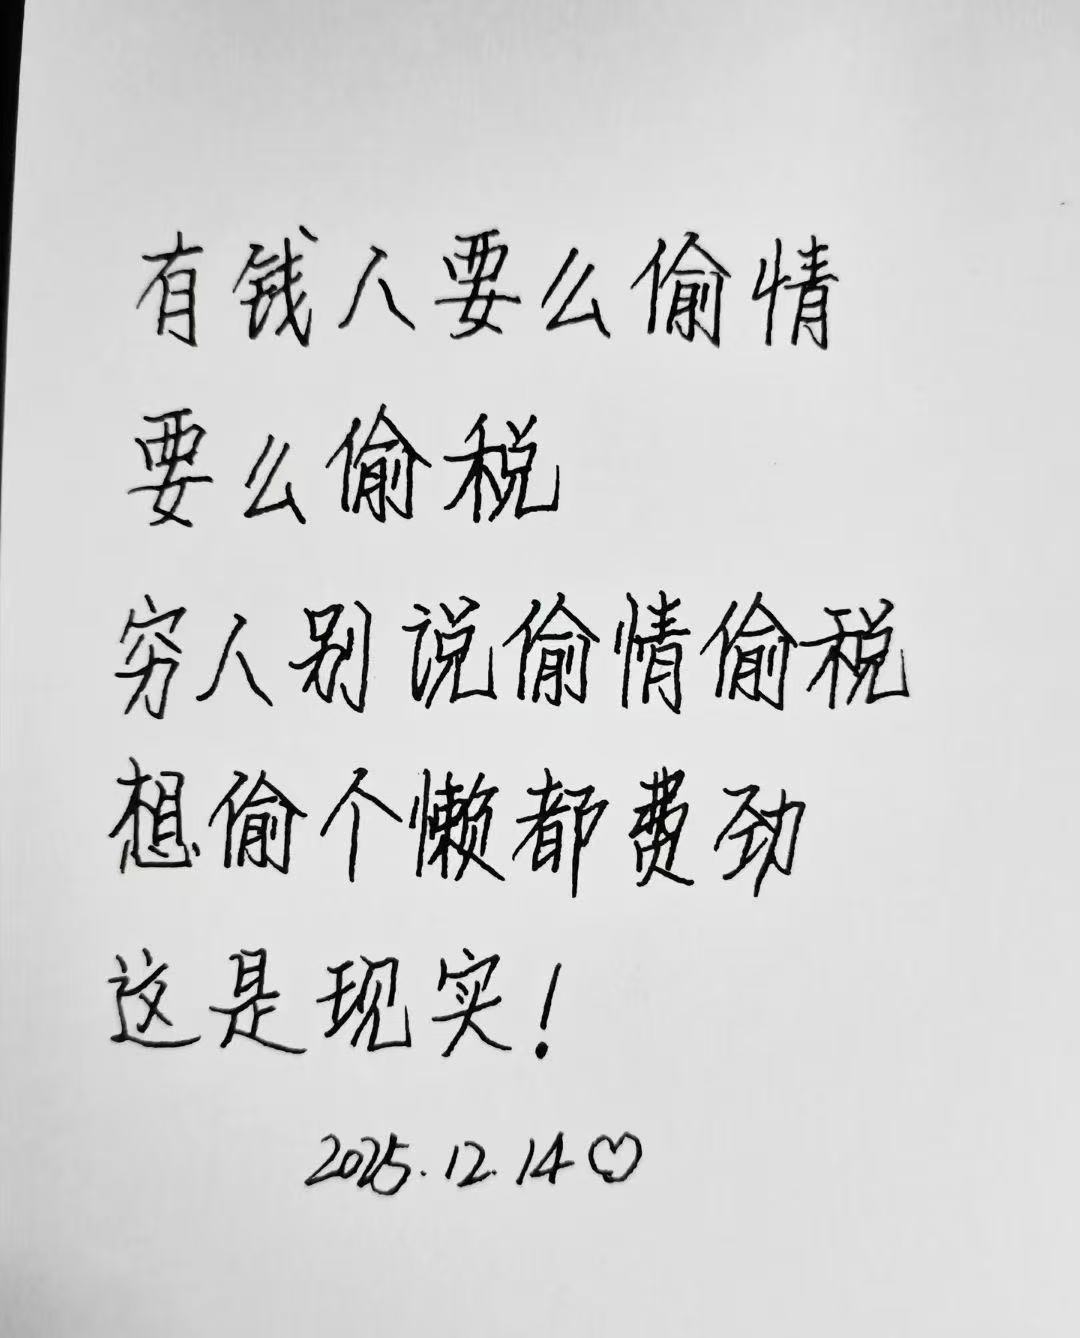 有钱人要么偷情
要么偷税
穷人别说偷情偷税
想偷个懒都费劲
这是现实!
2025.12.14♡